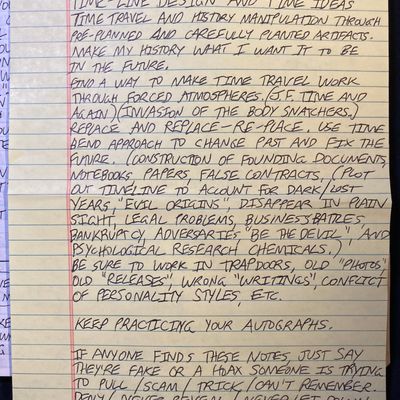 TIME-LINE DESIGN AND TIME IDEAS
TIME TRAVEL AND HISTORY MANIPULATION THROUGH
PRE-PLANNED AND CAREFULLY PLANTED ARTIFACTS.
MAKE MY HISTORY WHAT I WANT IT TO BE
IN THE FUTURE.
FIND A WAY TO MAKE TIME TRAVEL WORK
THROUGH FORCED ATMOSPHERES. (J.F. TIME AND
AGAIN) (INVASION OF THE BODY SNATCHERS.)
REPLACE AND REPLACE-RE-PLACE. USE TIME
BEND APPROACH TO CHANGE PAST AND FIX THE
FUTURE. (CONSTRUCTION OF FOUNDING DOCUMENTS,
NOTEBOOKS, PAPERS, FALSE CONTRACTS, (PLOT
OUT TIMELINE TO ACCOUNT FOR DARK/LOST
YEARS, "EVIL ORIGINS", DISAPPEAR IN PLAIN
SIGHT, LEGAL PROBLEMS, BUSINESS BATTLES,
BANKRUPTCY, ADVERSARIES "BE THE DEVIL", AND
PSYCHOLOGICAL RESEARCH CHEMICALS.)
BE SURE TO WORK IN TRAPDOORS, OLD "PHOTOS",
OLD "RELEASES", WRONG "WRITINGS", CONFLICT
OF PERSONALITY STYLES, ETC.
KEEP PRACTICING YOUR AUTOGRAPHS.
IF ANYONE FINDS THESE NOTES, JUST SAY
THEY'RE FAKE OR A HOAX SOMEONE IS TRYING
TO PULL / SCAM / TRICK / CAN'T REMEMBER.
DENY / NEVER REVEAL / NEVER LET DOWN